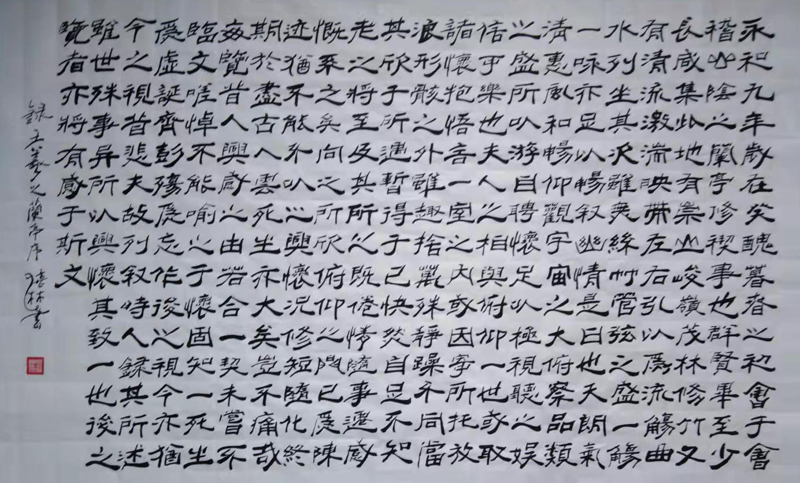 永和九年歲在癸醜暮春之初會于會
稽山陰之蘭亭修禊事也群賢畢至少
長咸集此地有崇山峻嶺茂林修竹又
有清流激湍映帶左右引以為流觴曲
水列坐其次雖無絲竹管弦之盛一觴
一詠亦足以暢叙幽情是日也天朗氣
清惠風和暢仰觀宇宙之大俯察品類
之盛所以游目騁懷足以極視聽之娛
信可樂也夫人之相與俯仰一世或取
諸懷抱悟言一室之内或因寄所托放
浪形骸之外雖趣舍萬殊靜躁不同當
其欣于所遇暫得于己快然自足不知
老之將至及其所之既倦情隨事遷感
慨系之矣向之所欣俯仰之間已為陳
迹猶不能不以之興懷況修短隨化終
期於盡古人雲死生亦大矣豈不痛哉
每覽昔人興感之由若合一契未嘗不
臨文嗟悼不能喻之于懷固知一死生
為虛誕齊彭殤為妄作後之視今亦猶
今之視昔悲夫故列叙時人錄其所述
雖世殊事異所以興懷其致一也後之
覽者亦將有感于斯文
錄王羲之蘭亭序 林書